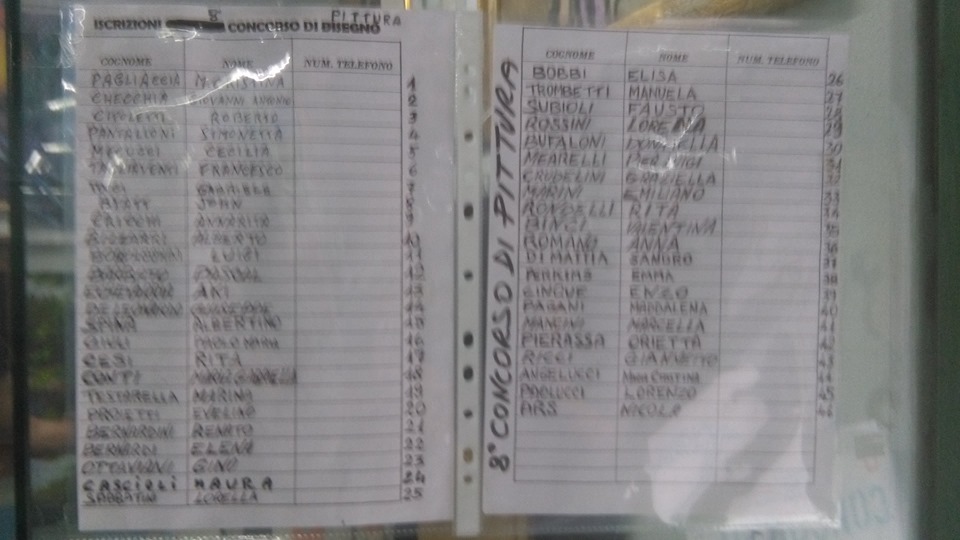 ISCRIZIONI 8° CONCORSO DI DISEGNO PITTURA
COGNOME NOME NUM. TELEFONO
PAGLIACCIA M. CRISTINA 1
CHECCHIA GIOVANNI ANTONIO 2
ROBERTO 3
PANTALIONI SIMONETTA 4
CECILIA 5
FRANCESCO 6
GABRIELE 7
JOHN 8
CRICCHI ANNARITA 9
ALBERTO 10
LUIGI 11
12
AKI 13
14
SPINA ALBERTINO 15
GIGLI PAOLO MARIA 16
CESI RITA 17
CONTI MARIA GABRIELLA 18
TESTARELLA MARINA 19
PROIETTI EVELINO 20
BERNARDINI RENATO 21
BERNARDI ELENA 22
OTTAVIANI GINO 23
CASCIOLI MAURA 24
SABBATINI LORELLA 25
8° CONCORSO DI PITTURA
COGNOME NOME NUM. TELEFONO
BOBBI ELISA 26
TROMBETTI MANUELA 27
SUBIOLI FAUSTO 28
ROSSINI LORENA 29
BUFALONI DONATELLA 30
MEARELLI PIERLUIGI 31
CRUDELINI GRAZIELLA 32
MARINI EMILIANO 33
RONDELLI RITA 34
BINCI VALENTINA 35
ROMANO ANNA 36
DI MATTIA SANDRO 37
PERKINS EMMA 38
CINQUE ENZO 39
PAGANI MADDALENA 40
MANCINI MARCELLA 41
PIERASSA ORIETTA 42
RICCI GIANNETTO 43
ANGELUCCI MARIA CRISTINA 44
PAOLUCCI LORENZO 45
ARS NICOLA 46